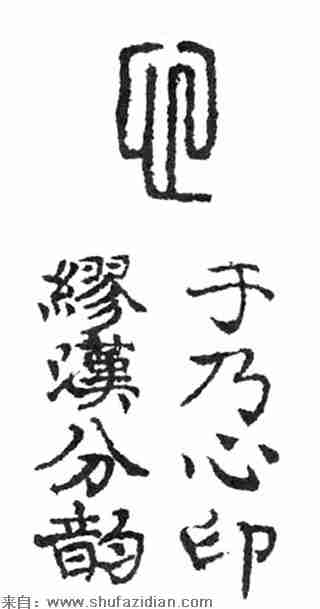 心
于乃心印
繆漢分韵
来自：www.shufazidian.com